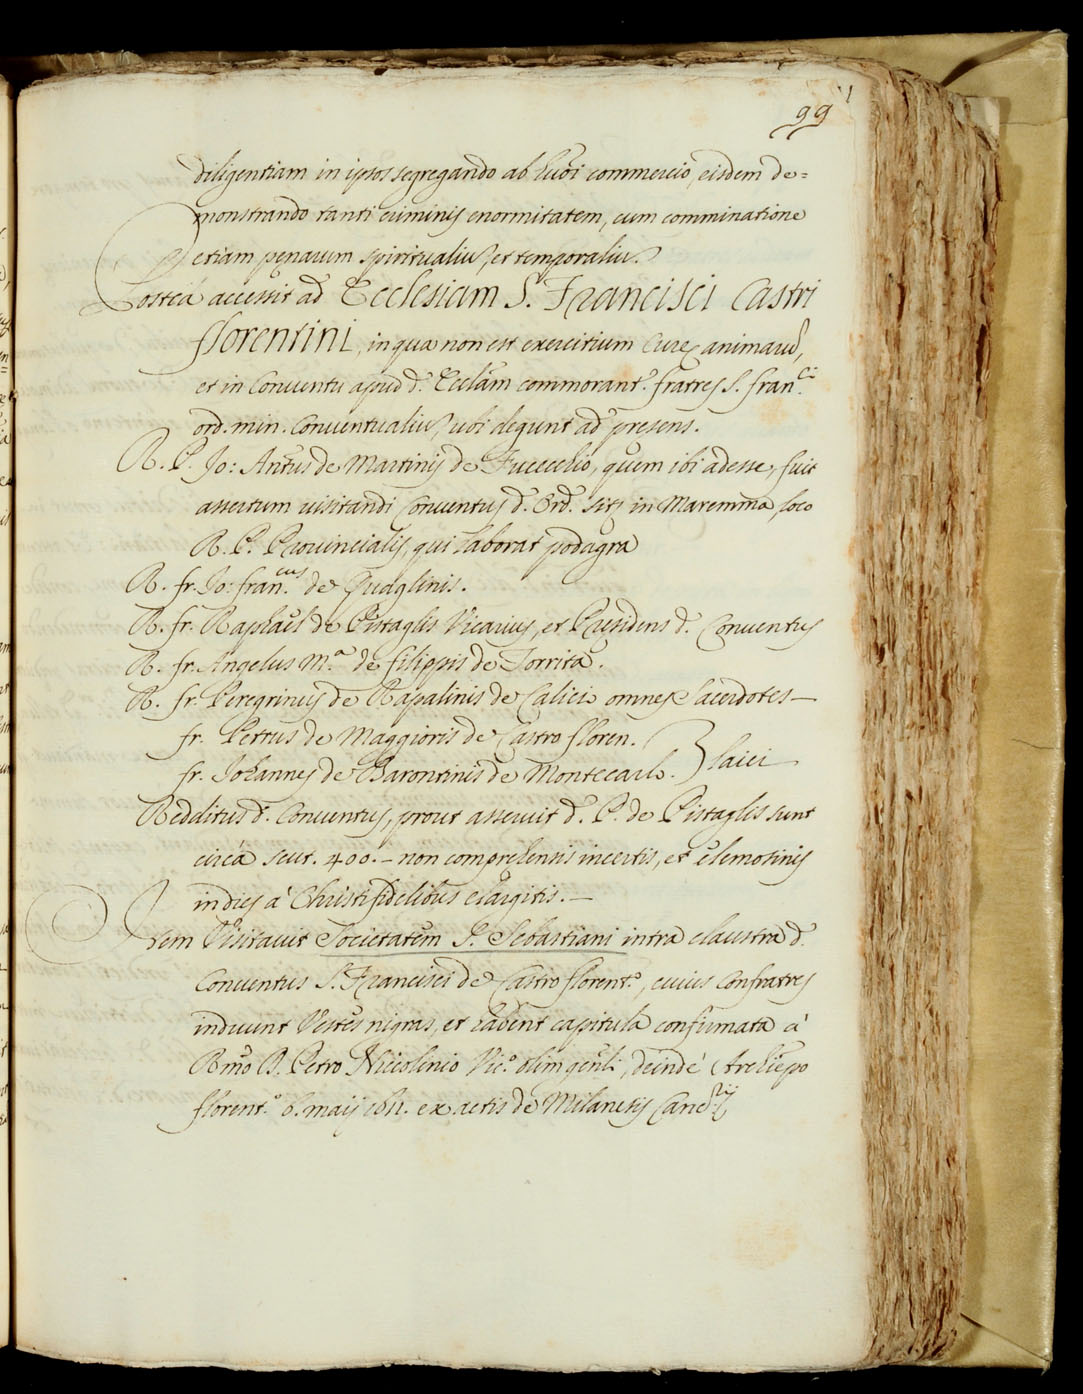 99
diligentiam in ipsos segregando ab huõi commercio, eisdem de=
monstrando tanti criminis enormitatem, cum comminatione
etiam penarum spiritualiu, et temporaliu.
Postea accessit ad Ecclesiam S. Francisci Castri
florentini, in qua non est exercitium Cure animarũ,
et in Conventu apud d. Ecclãm commorant. fratres S. Fran.ci
ord. min. Conventualiu, ubi degunt ad presens.
R. P. Jo: Antus de Martinis de Fucecchio, quem ibi adesse, fuit
assertum visitandi Conventus d. Ord. sitos in Maremma, loco
R. P. Provincialis, qui laborat podagra
R. fr. Jo: fran.cus de Quaglinis.
R. fr. Raphael de Pistaglis Vicarius, et Presidens d. Conventus
R. fr. Angelus M.a de filippis de Torrita.
R. fr. Peregrinus de Rapalinis de Calici omnes sacerdotes —
fr. Petrus de Maggioris de Castro floren.
fr. Johannes de Barontinis de Montecarlo. } laici
Redditus d. Conventus, prout asseruit d. P. de Pistaglis sunt
circa scut. 400. — non comprehensis incertis, et elemosinis
indies à Christifidelibus elargitis. —
Item Visitavit Societatem S. Sebastiani intra claustra d.
Conventus S. Francisci de Castro florent.o, cuius Confratres
induunt Vestes nigras, et habent capitula confirmata à
Rmo D. Petro Niccolinio Vic.o olim genli, deindè Archiepo
florent.o 6. maij 1611. ex actis de Milanesis Canc.rij